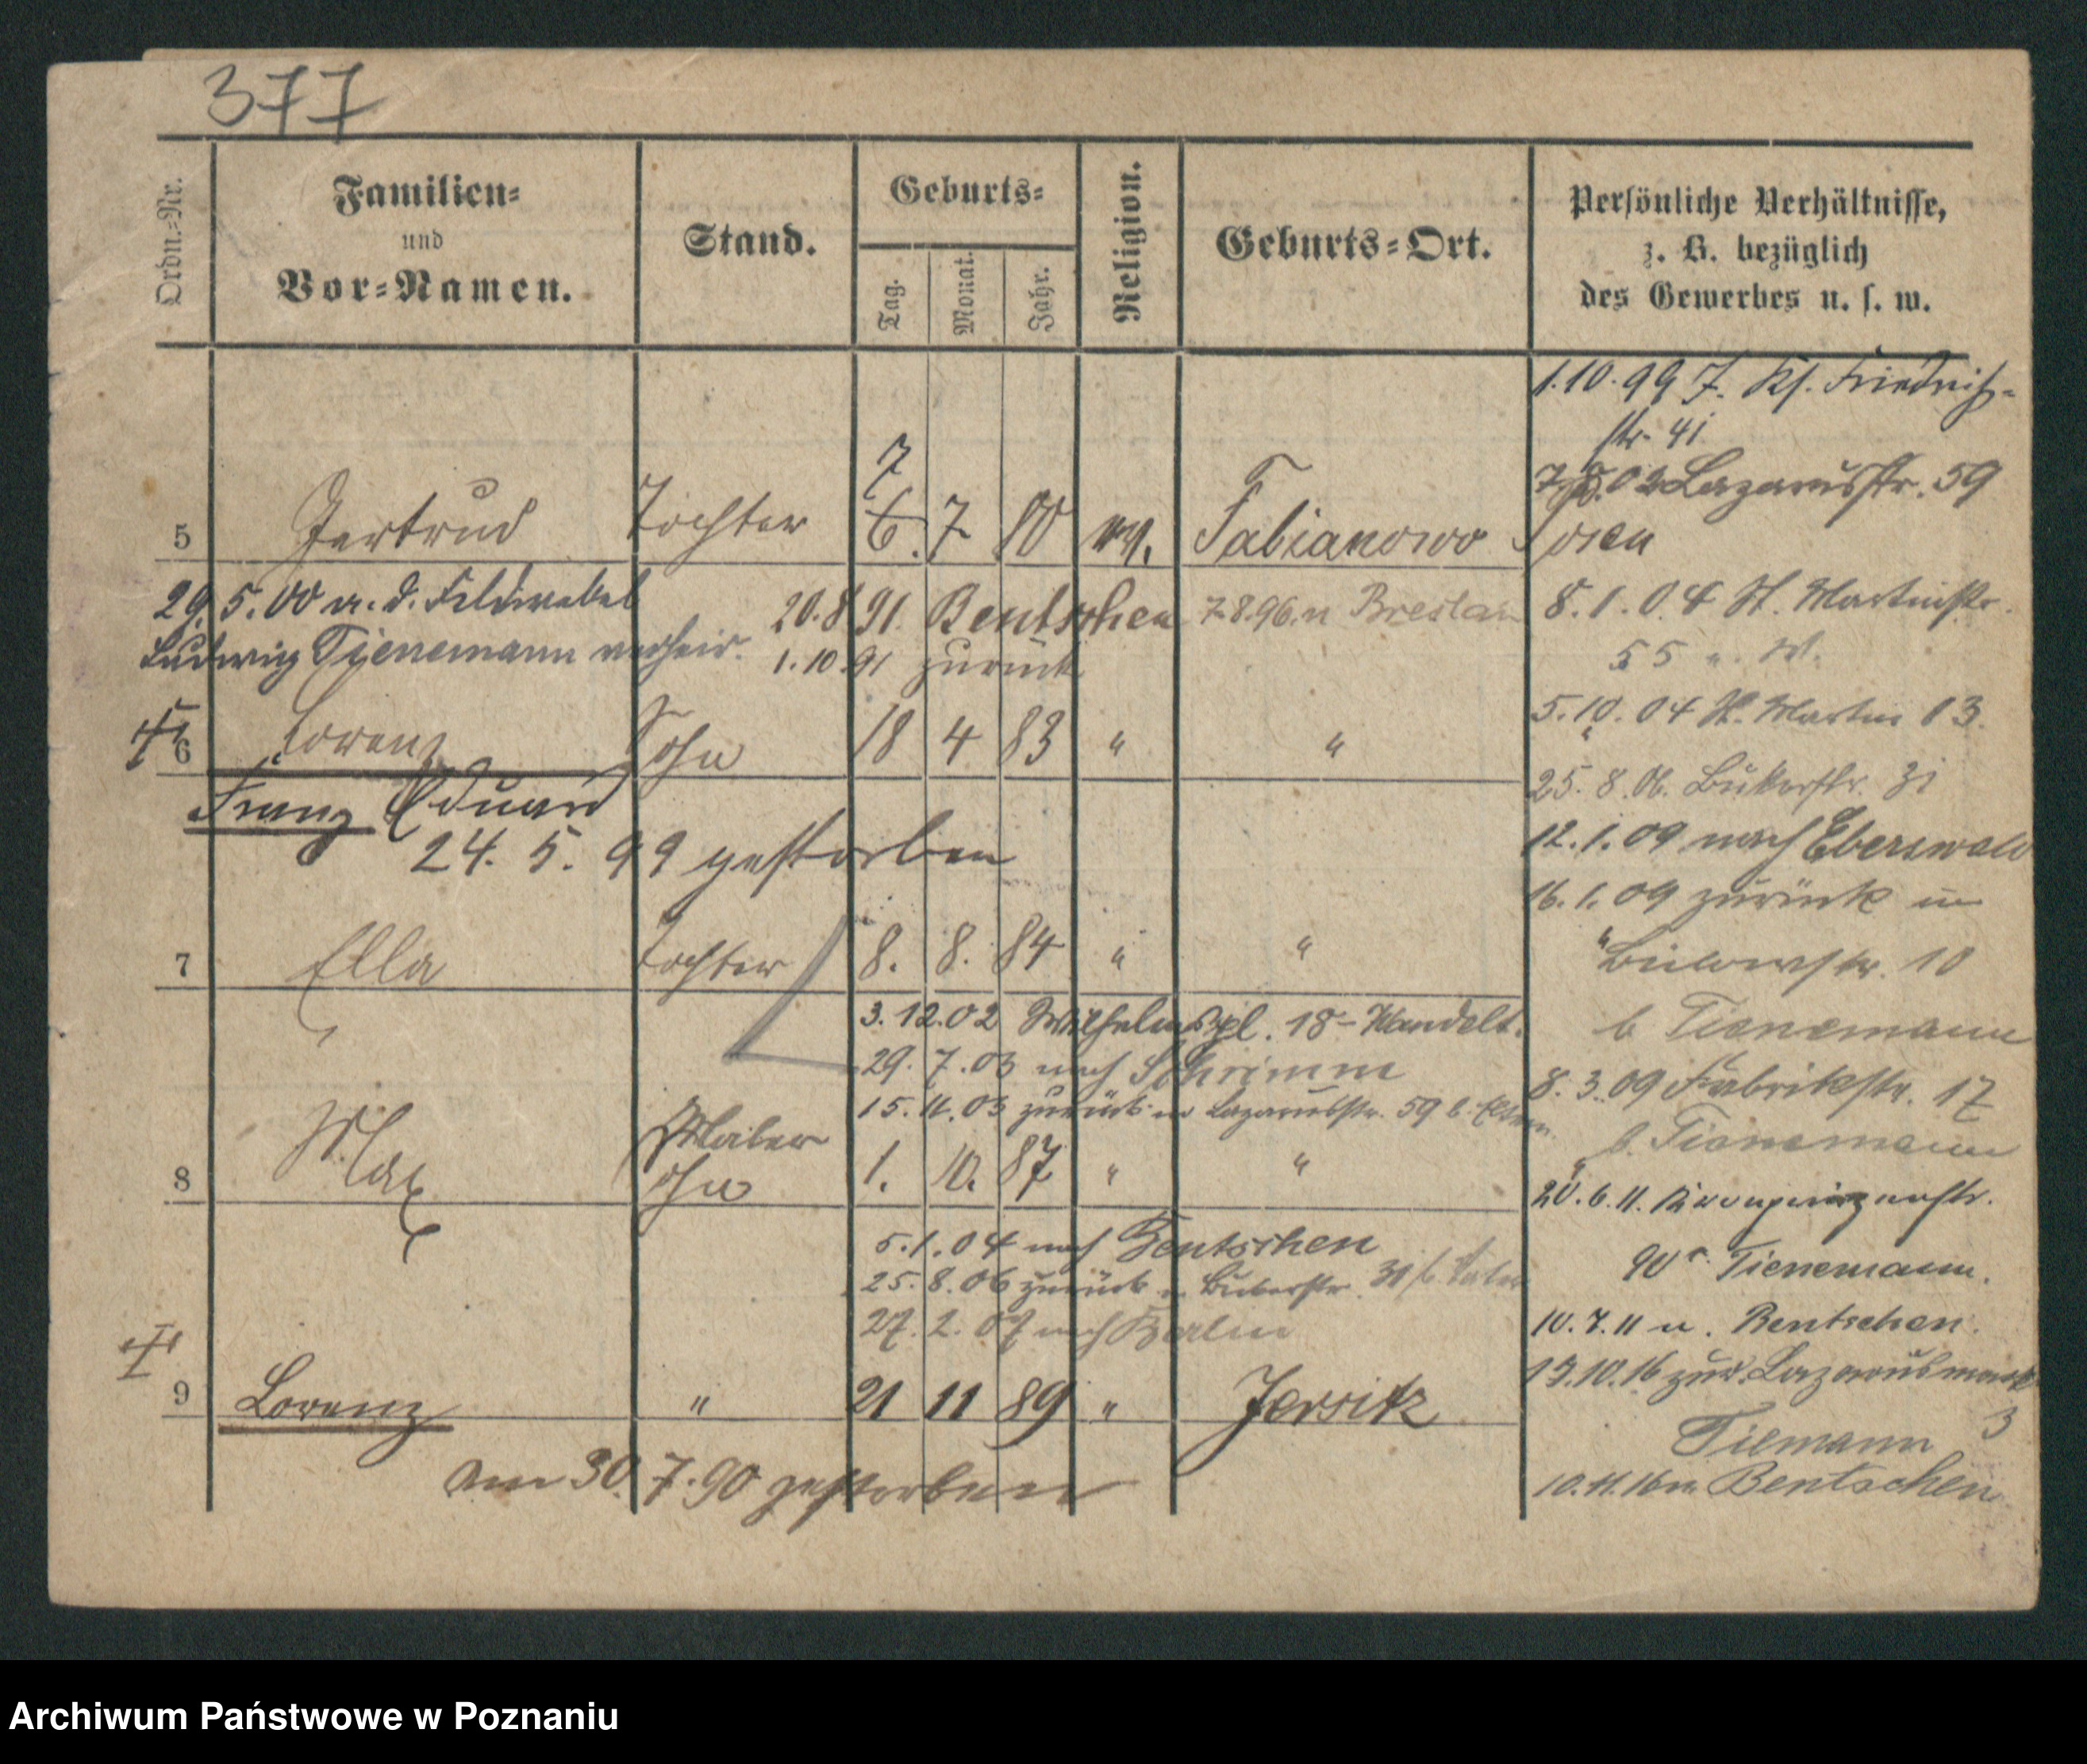 377
Ordn.-Nr.
Familien-
und
Vor-Namen.
Stand.
Geburts-
Tag.
Monat.
Jahr.
Religion.
Geburts-Ort.
Persönliche Verhältnisse,
z. B. bezüglich
des Gewerbes u. s. w.
1.10.99 Friedrich-
str. 41
02 Lazarusstr. 59
7
5 Gertrud Tochter 6. 7 ev. Fabianowo
29.5.00 m. d. Feldwebel
Ludwig Tienemann verheir.
20.8.91. Bentschen
1.10.91 zurück
7.8.96. n Breslau
8.1.04 St. Martinstr.
55
6 Lorenz Sohn 18 4 83 " "
Franz Eduard
24. 5. 99 gestorben
5.10.04 St. Martin 13.
25.8.06. Bukerstr. 31
12.1.09 nach Eberswald
16.1.09 zurück
7 Ella Tochter 8. 8. 84 " "
Bülowstr. 10
b Tienemann
3.12.02 Wilhelmspl. 18 - Handels.
29.7.03 nach Schrimm
15.11.03 zurück Lazarusstr. 59 b. Eltern
8.3.09 Fabrikstr. 17
b. Tienemann
Maler
8 Max Sohn 1. 10. 87 " "
20.6.11. Kronprinzenstr.
90 Tienemann.
5.1.04 nach Bentschen
25.8.06 zurück Bukerstr. 31 b. Vater
27.2.07 nach Berlin
10.7.11 n. Bentschen.
10.16 zur. Lazarusmarkt
3
9 Lorenz " 21 11 89 " Jersitz
Tiemann
am 30.7.90 gestorben
10.11.16 n. Bentschen
Archiwum Państwowe w Poznaniu